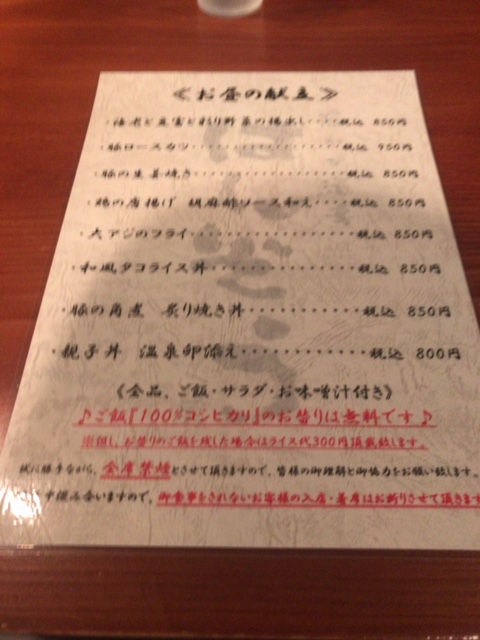 ≪お昼の献立≫
・海老と豆富と彩り野菜の揚出し････税込 850円
・豚ロースカツ･･････････････税込 950円
・豚の生姜焼き･･････････････税込 850円
・鶏の唐揚げ 胡麻酢ソース和え････税込 850円
・大アジのフライ･････････････税込 850円
・和風タコライス丼････････････税込 850円
・豚の角煮 炙り焼き丼･････････税込 850円
・親子丼 温泉卵添え･･････････税込 800円
《全品、ご飯・サラダ・お味噌汁付き》
♪ご飯『100%コシヒカリ』のお替りは無料です♪
※但し、お替りのご飯を残した場合はライス代300円頂戴致します。
誠に勝手ながら、全席禁煙とさせて頂きますので、皆様の御理解と御協力をお願い致します。
混み合いますので、御食事をされないお客様の入店・着席はお断りさせて頂きます